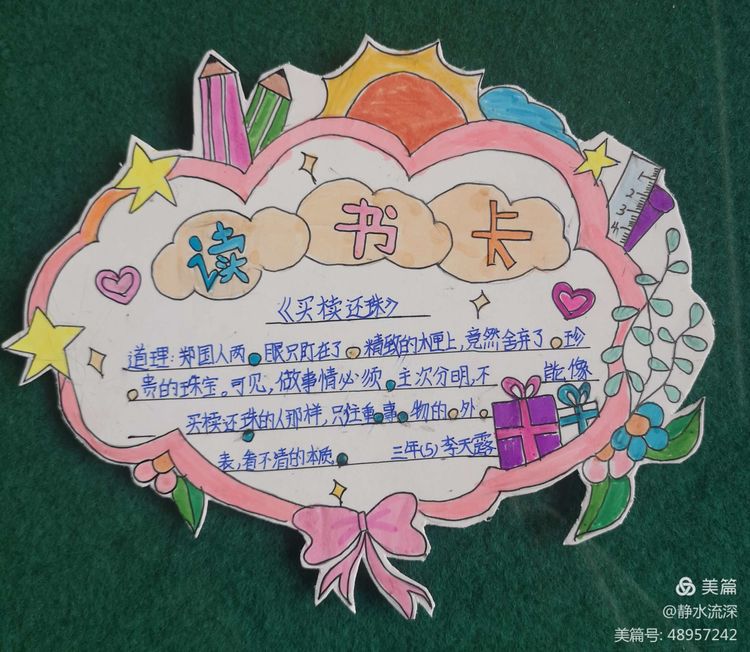 读书卡
《买椟还珠》
道理:郑国人两眼只盯在了精致的木匣上,竟然舍弃了珍
贵的珠宝。可见,做事情必须主次分明,不能像
买椟还珠的人那样,只注重事物的外
表,看不清的本质
三年(5)李天露
1
2
3
4
美篇
@静水流深
美篇号: 48957242